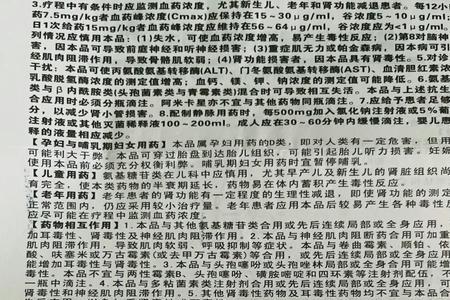 3.疗程中有条件时应监测血药浓度,尤其新生儿、老年和肾功能减退患者。每12小
药7.5mg/kg者血药峰浓度(Cmax)应保持在15~30μg/ml,谷浓度5~10μg/ml;
日1次给药15mg/kg者血药峰浓度应维持在56~64μg/ml,谷浓度应为<1μg/ml。
列情况应慎用本品:(1)失水,可使血药浓度增高,易产生毒性反应。(2)第8对脑神
害,因本品可导致前庭神经和听神经损害;(3)重症肌无力或帕金森病,因本病可引
经肌肉阻滞作用,导致骨骼肌软弱;(4)肾功能损害者,因本品具有肾毒性。5.对诊
干扰:本品可使丙氨酸氨基转移酶(ALT)、门冬氨酸氨基转移酶(AST)、血清胆红素浓
乳酸脱氢酶浓度的测定值增高;血钙、镁、钾、钠浓度的测定值可能降低。6.氨基
类与β内酰胺类(头孢菌素类与青霉素类)混合时可导致相互失活。本品与上述抗生
合应用时必须分瓶滴注。阿米卡星亦不宜与其他药物同瓶滴注。7.应给予患者足够
分,以减少肾小管损害。8.配制静脉用药时,每500mg加入氯化钠注射液或5%葡
注射液或其他灭菌稀释液100~200ml。成人应在30~60分钟内缓慢滴注,婴儿患
释的液量相应减少。
【孕妇与哺乳期妇女用药】本品属孕妇用药的D类,即对人类有一定危害,但用
可能利大于弊。本品可穿过胎盘到达胎儿组织,可能引起胎儿听力损害。妊娠
使用本品前必须充分权衡利弊。哺乳期妇女用药时宜暂停哺乳。
【儿童用药】氨基糖苷类在儿科中应慎用,尤其早产儿及新生儿的肾脏组织尚
育完全,使本类药物的半衰期延长,药物易在体内蓄积产生毒性反应。
【老年用药】老年患者的肾功能有一定程度的生理性减退,即使肾功能的测定
正常范围内,仍应采用较小治疗量。老年患者应用本品后较易产生各种毒性反
应尽可能在疗程中监测血药浓度。
【药物相互作用】1.本品与其他氨基糖苷类合用或先后连续局部或全身应用,
加耳毒性、肾毒性以及神经肌肉阻滞作用。2.本品与神经肌肉阻断药合用可加重
肌肉阻滞作用,导致肌肉软弱、呼吸抑制等症状。本品与卷曲霉素、顺铂、依
酸、呋塞米或万古霉素(或去甲万古霉素)等合用,或先后连续局部或全身应用,
能增加耳毒性与肾毒性。3.本品与头孢噻吩或头孢唑林局部或全身合用可能增
毒性。本品不宜与两性霉素B、头孢噻吩、磺胺嘧啶和四环素等注射剂配伍,不
一瓶中滴注。4.本品与多粘菌素类注射剂合用或先后连续局部或全身应用,可
毒性和神经肌肉阻滞作用。5.其他肾毒性药物及耳毒性药物均不宜与本品合用